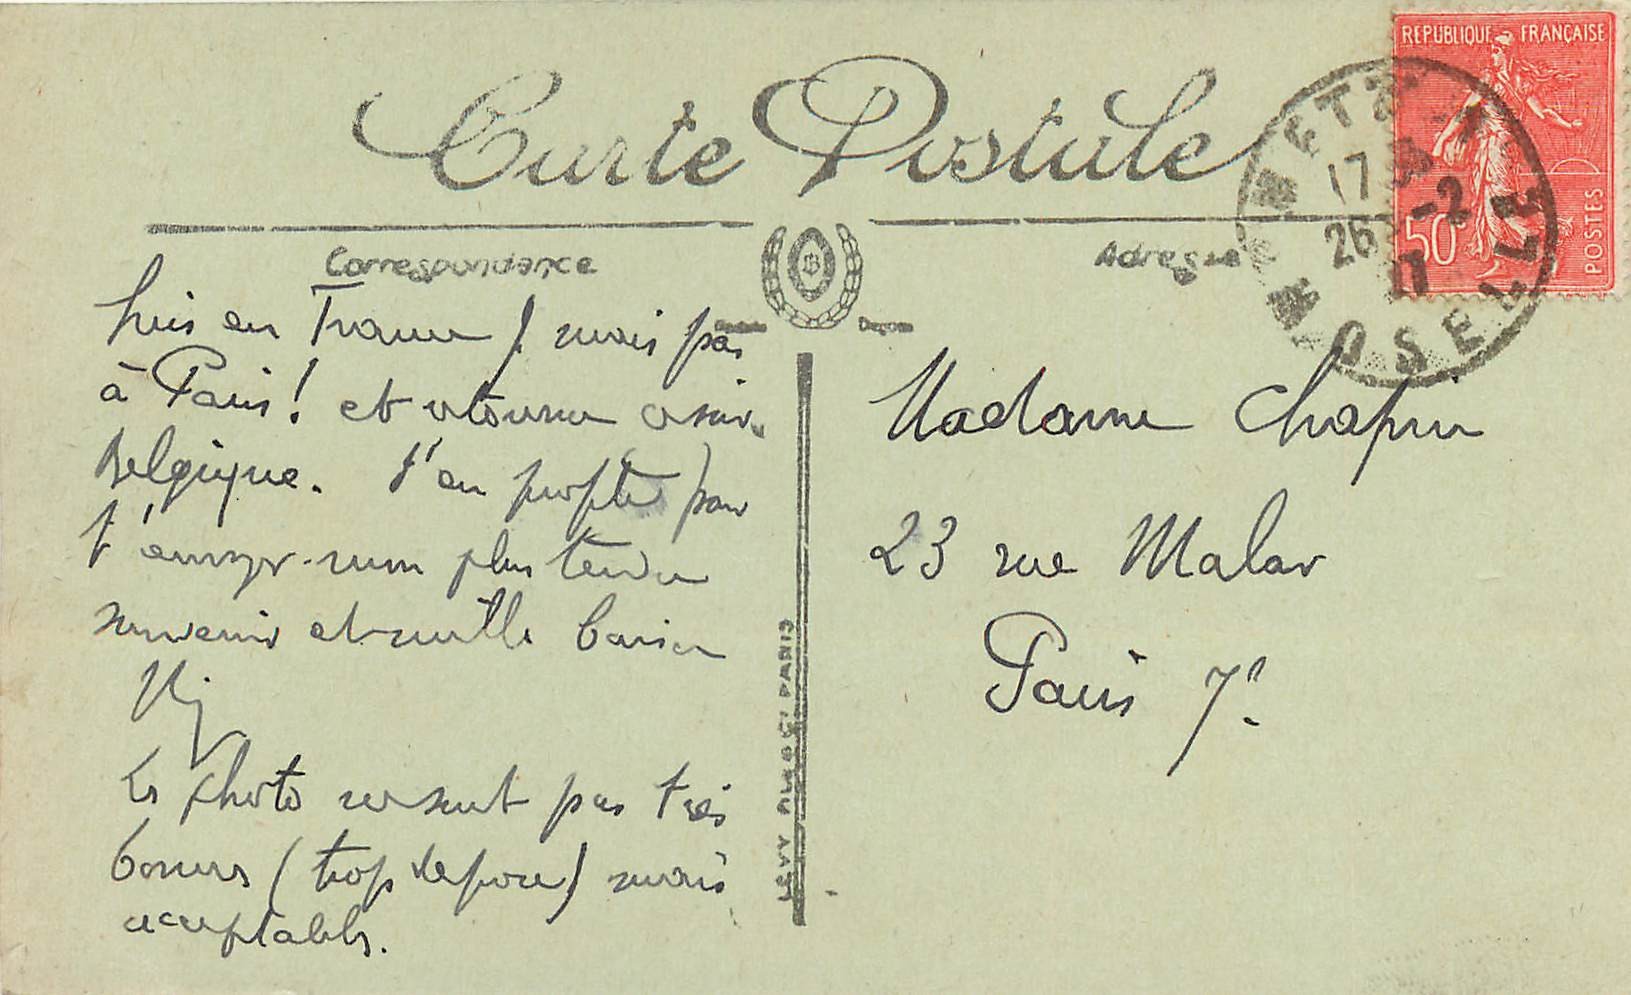 Carte Postale
RÉPUBLIQUE FRANÇAISE
50
POSTES
METZ
17
26 -2
MOSELLE
Correspondance
Adresse
Suis en France, mais pas
à Paris ! et retourne ce soir
Belgique. J'en profite pour
t'envoyer mon plus tendre
souvenir et mille baisers
Les photos ne sont pas très
bonnes (trop de pose) mais
acceptables.
LÉVY PARIS
Madame Chapin
23 rue Malar
Paris 7e